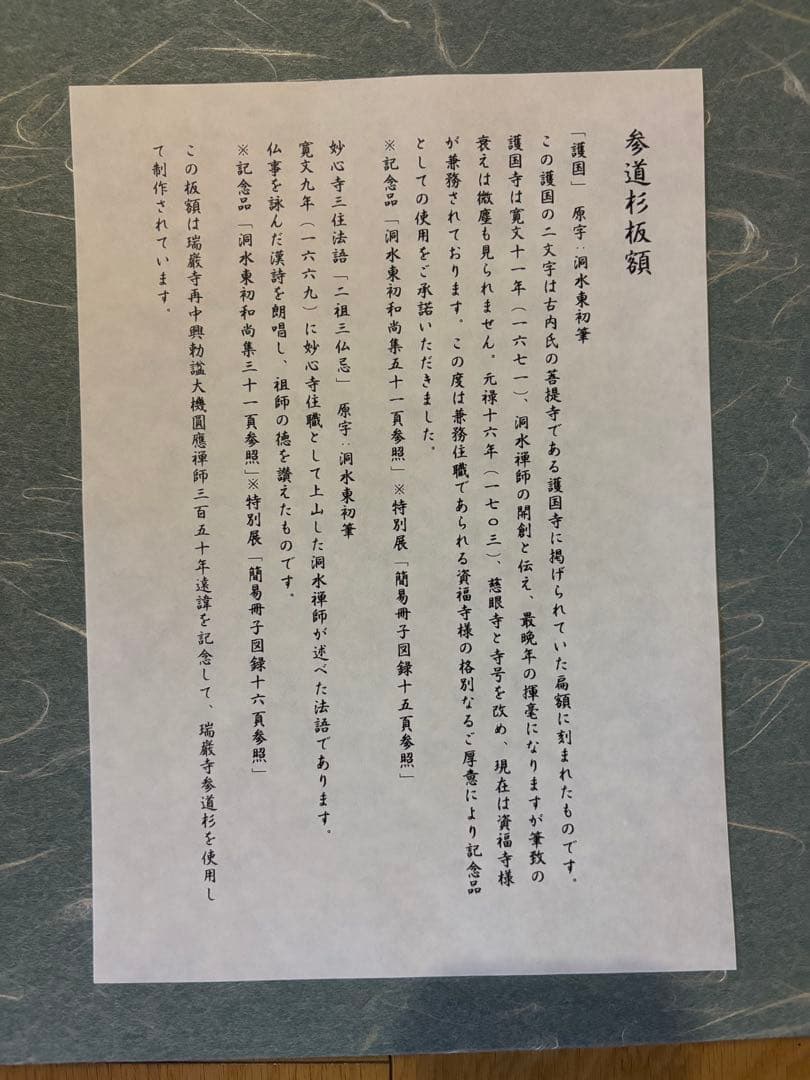 参道杉板額
「護国」　原字：洞水東初筆
この護国の二文字は古内氏の菩提寺である護国寺に掲げられていた扁額に刻まれたものです。
護国寺は寛文十一年（一六七一）、洞水禅師の開創と伝え、最晩年の揮毫になりますが筆致の
衰えは微塵も見られません。元禄十六年（一七〇三）、慈眼寺と寺号を改め、現在は資福寺様
が兼務されております。この度は兼務住職であられる資福寺様の格別なるご厚意により記念品
としての使用をご承諾いただきました。
※記念品「洞水東初和尚集五十一頁参照」※特別展「簡易冊子図録十五頁参照」
妙心寺三住法語「二祖三仏忌」　原字：洞水東初筆
寛文九年（一六六九）に妙心寺住職として上山した洞水禅師が述べた法語であります。
仏事を詠んだ漢詩を朗唱し、祖師の徳を讃えたものです。
※記念品「洞水東初和尚集三十一頁参照」※特別展「簡易冊子図録十六頁参照」
この板額は瑞巌寺再中興勅諡大機圓應禅師三百五十年遠諱を記念して、瑞巌寺参道杉を使用し
て制作されています。